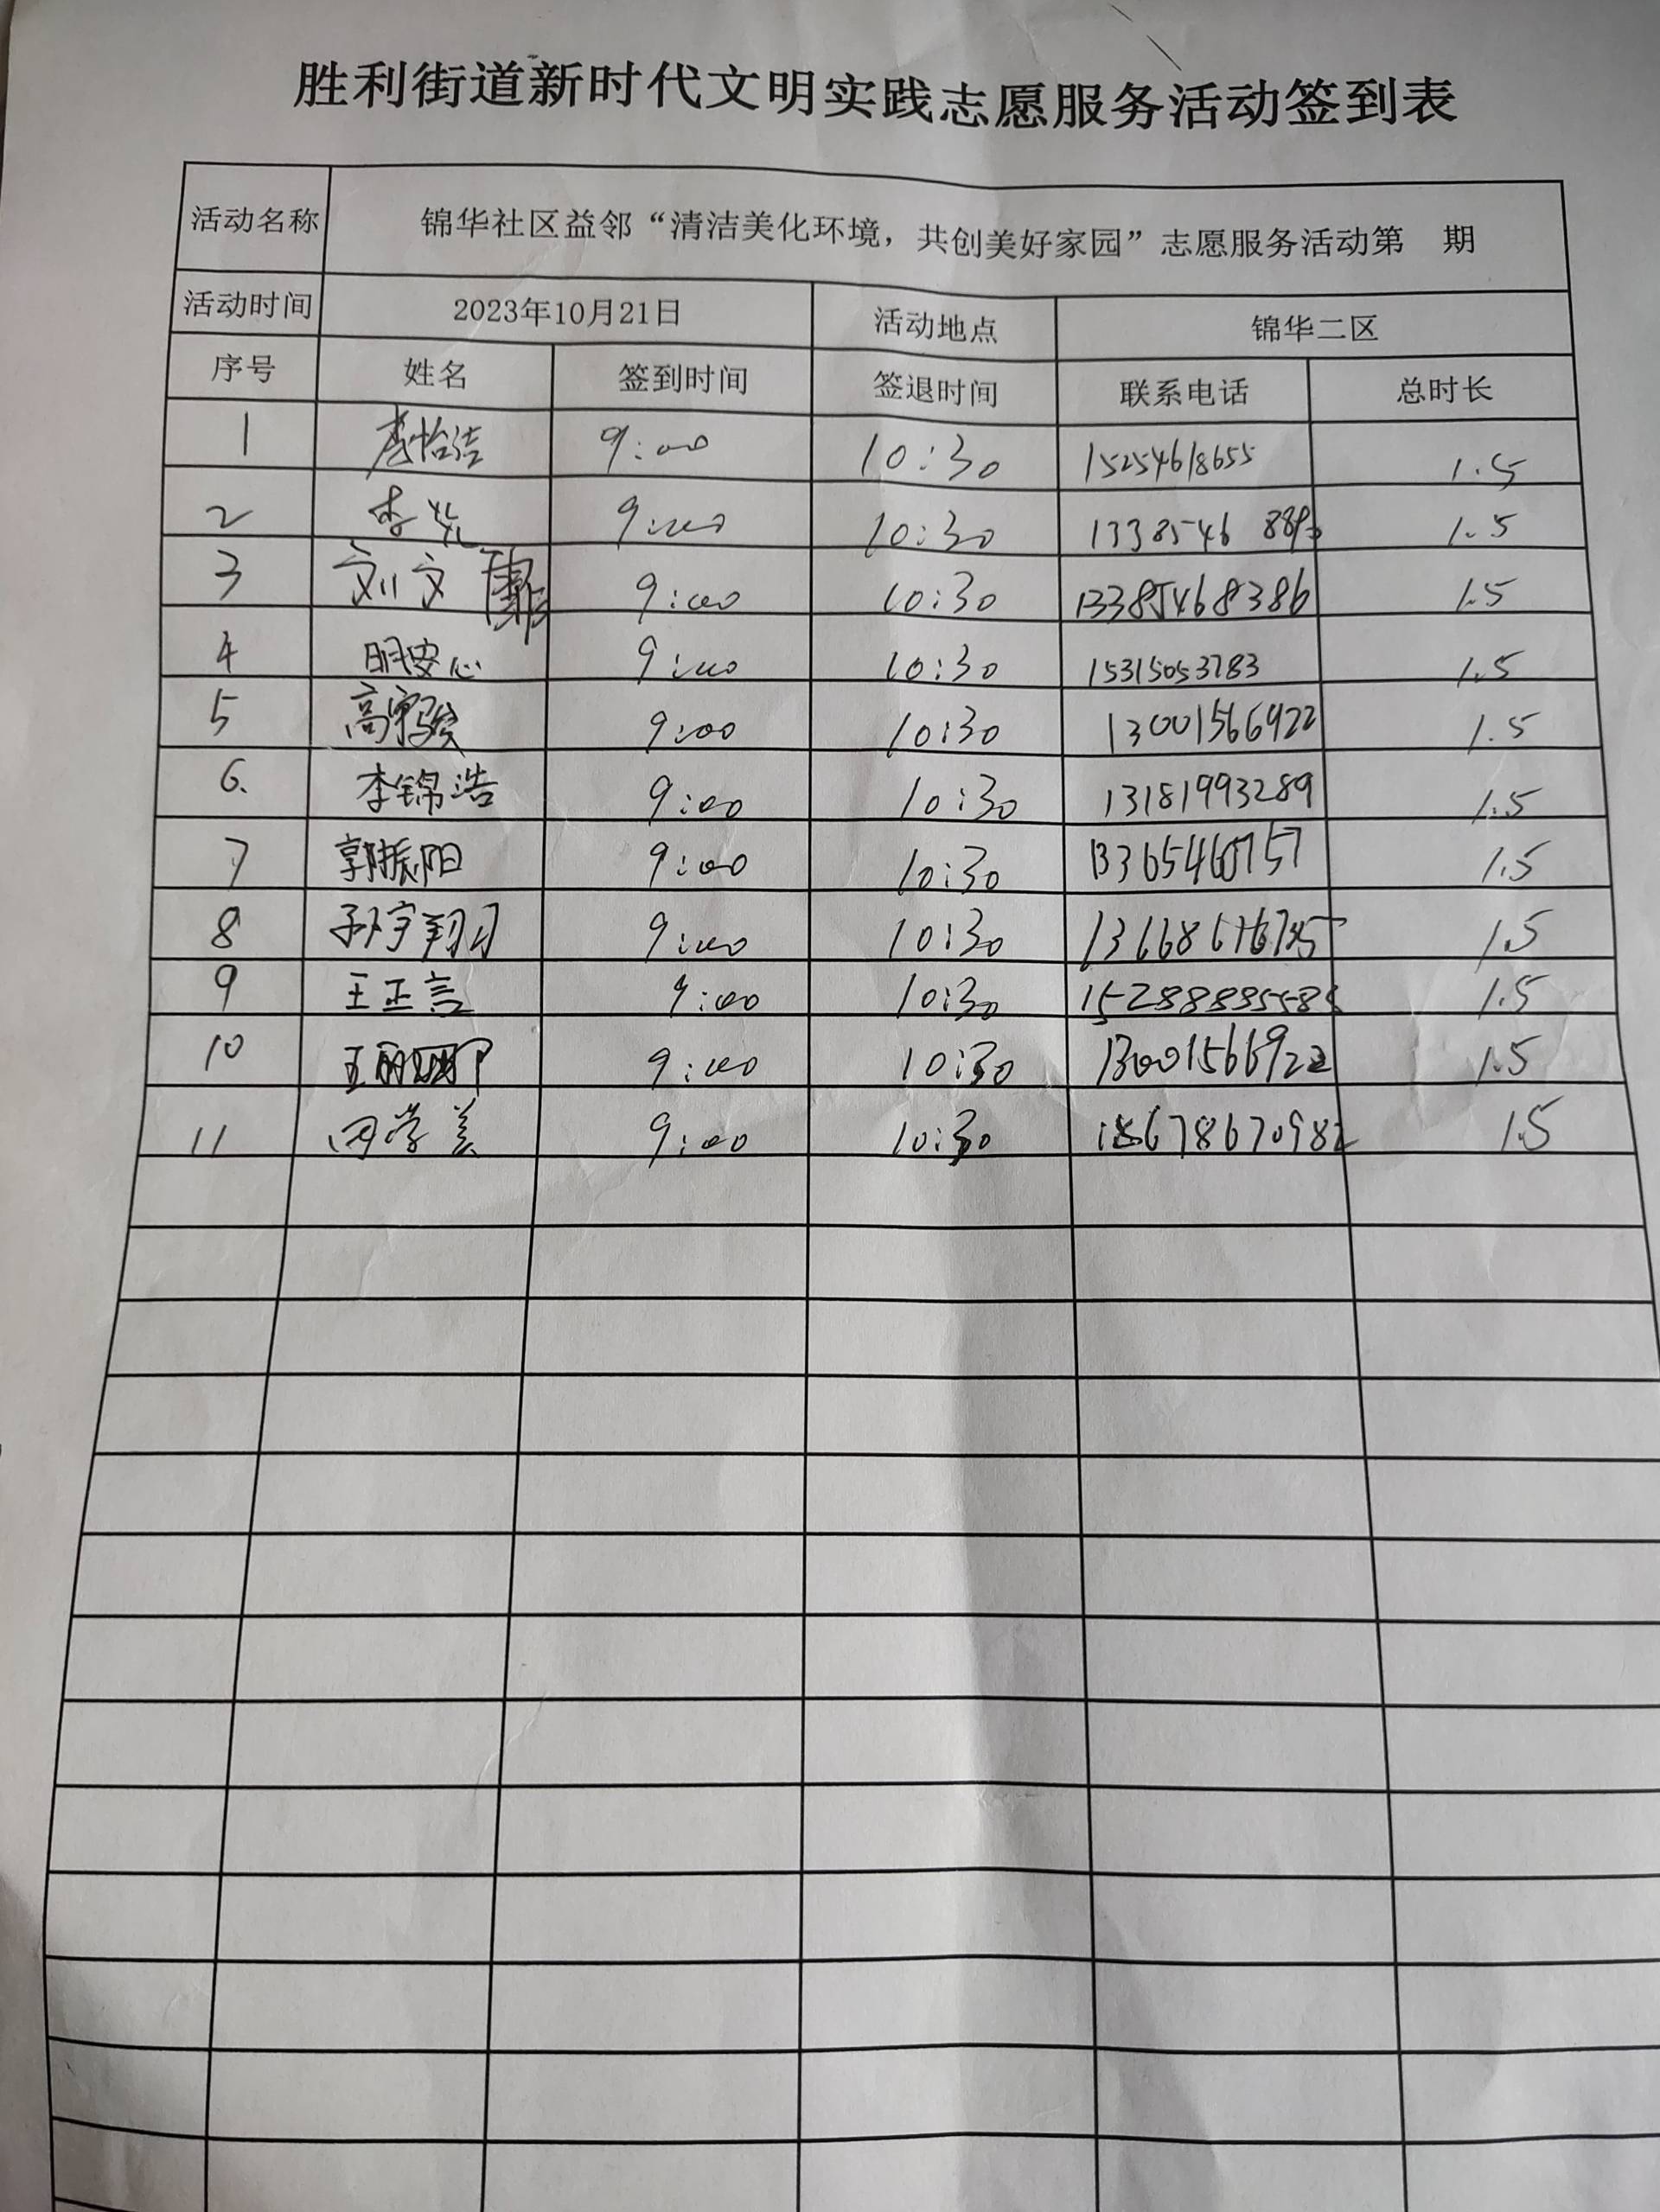 胜利街道新时代文明实践志愿服务活动签到表
活动名称 锦华社区益邻“清洁美化环境，共创美好家园”志愿服务活动第 期
活动时间 2023年10月21日 活动地点 锦华二区
序号 姓名 签到时间 签退时间 联系电话 总时长
1 9:00 10:30 15254618655 1.5
2 9:00 10:30 1.5
3 刘文 9:00 10:30 13385468386 1.5
4 明安心 9:00 10:30 15315053783 1.5
5 9:00 10:30 13001566922 1.5
6. 李锦浩 9:00 10:30 13181993289 1.5
7 郭振阳 9:00 10:30 1.5
8 孙宇翔 9:00 10:30 1.5
9 王正言 9:00 10:30 1.5
10 9:00 10:30 13001566922 1.5
11 9:00 10:30 1.5